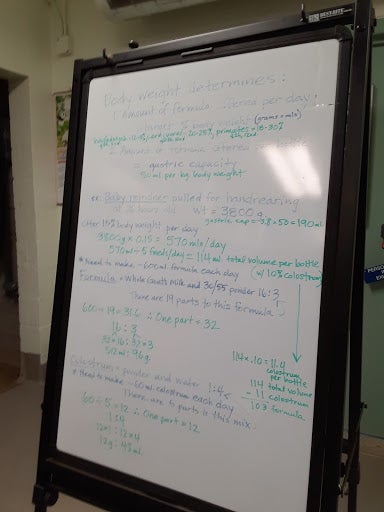 BEST-RITE
Body weight determines:
1 Amount of formula offered per day,
target % body weight (grams = mls)
hoofed 15-25%, carnivores 20-25%, primates = 15-30%
2 Amount of formula offered per bottle
= gastric capacity
50 ml per kg body weight
ex: Baby reindeer pulled for handrearing
at 36 hours old wt = 3800 g
gastric cap = 3.8 x 50 = 190 ml
Offer 15% body weight per day
3800 g x 0.15 = 570 mls/day
570 ml ÷ 5 feeds/day = 114 ml total volume per bottle
* Need to make ~600 ml formula each day (w/ 10% colostrum)
Formula = Whole Goat's Milk and 30/55 powder 16:3
There are 19 parts to this formula
600 ÷ 19 = 31.6 ∴ One part = 32
16 : 3
32 x 16 : 32 x 3
512 ml : 96 g
114 x .10 = 11.4
colostrum
per bottle
114 total volume
- 11 colostrum
103 formula
Colostrum = powder and water 1:4
* Need to make ~60 ml colostrum each day
There are 5 parts to this mix.
60 ÷ 5 = 12 ∴ One part = 12
1:4
12 x 1 : 12 x 4
12 g : 48 ml